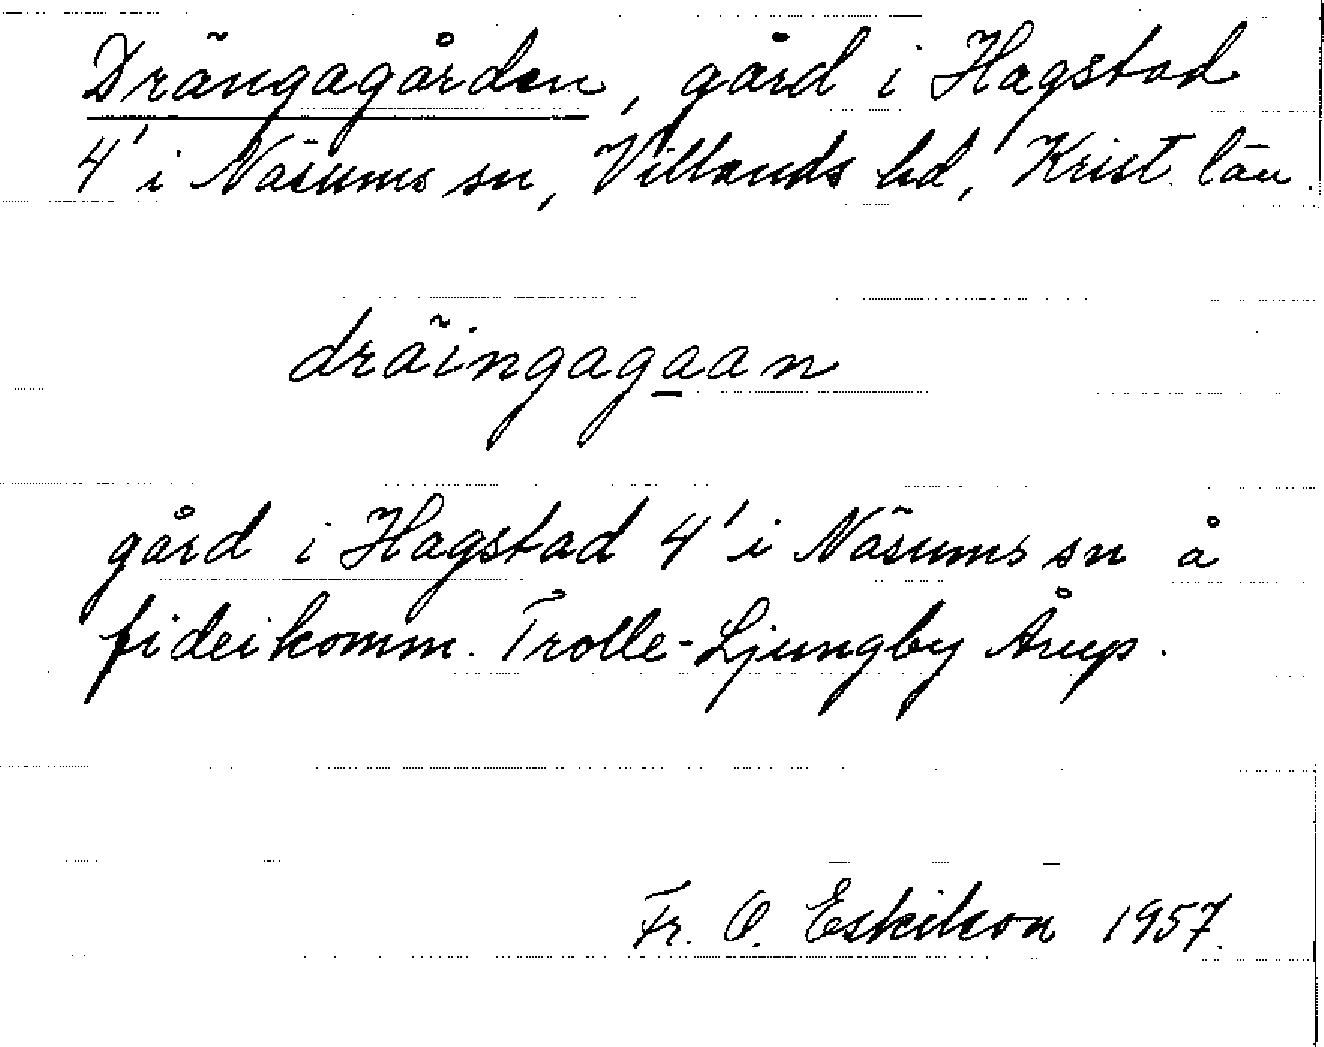 Drängagården, gård i Hagstad
4' i Näsums sn, Villands hd, Krist. län.
dräingagaan
gård i Hagstad 4' i Näsums sn å
fideikomm. Trolle-Ljungby Årup.
Fr. O. Eskilson 1957.